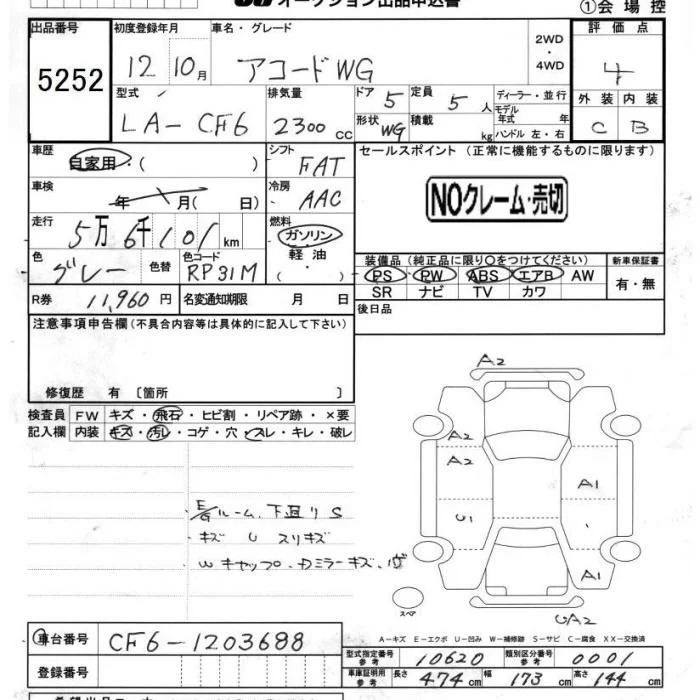 オークション出品申込書
①会場控
出品番号 初度登録年月 車名・グレード 評価点
5252 12 10月 アコードWG 2WD・4WD 4
型式 排気量 ドア 定員 ディーラー・並行 外装 内装
LA-CF6 2300cc 5 5人 モデル年式 年 C B
形状 WG 積載 kg ハンドル 左・右
車歴 シフト セールスポイント (正常に機能するものに限ります)
自家用・( ) FAT
車検 冷房 NOクレーム・売切
年 月( 日) AAC
走行 燃料
5万6千101km ガソリン
色 色替 色コード 軽油 装備品(純正品に限り〇をつけてください) 新車保証書
グレー RP31M ・( ) PS PW ABS エアB AW 有・無
R券 11,960円 名変通知期限 月 日 SR ナビ TV カワ
注意事項申告欄(不具合内容等は具体的に記入して下さい) 後日品
修復歴 有 〔箇所 〕
検査員 FW キズ・飛石・ヒビ割・リペア跡・×要
記入欄 内装 キズ・汚レ・コゲ・穴・スレ・キレ・破レ
A2
A2
A2
A1
U1
A1
UA2
スペア
・E/Gルーム、下廻りS
・キズ U スリキズ
Wキャップ・
ミラーキズ、
A-キズ E-エクボ U-凹み W-補修跡 S-サビ C-腐食 XX-交換済
車台番号 CF6-1203688
登録番号
型式指定番号 参考 10620 類別区分番号 参考 0001
車庫証明用 参考 長さ 474cm 幅 173cm 高さ 144cm